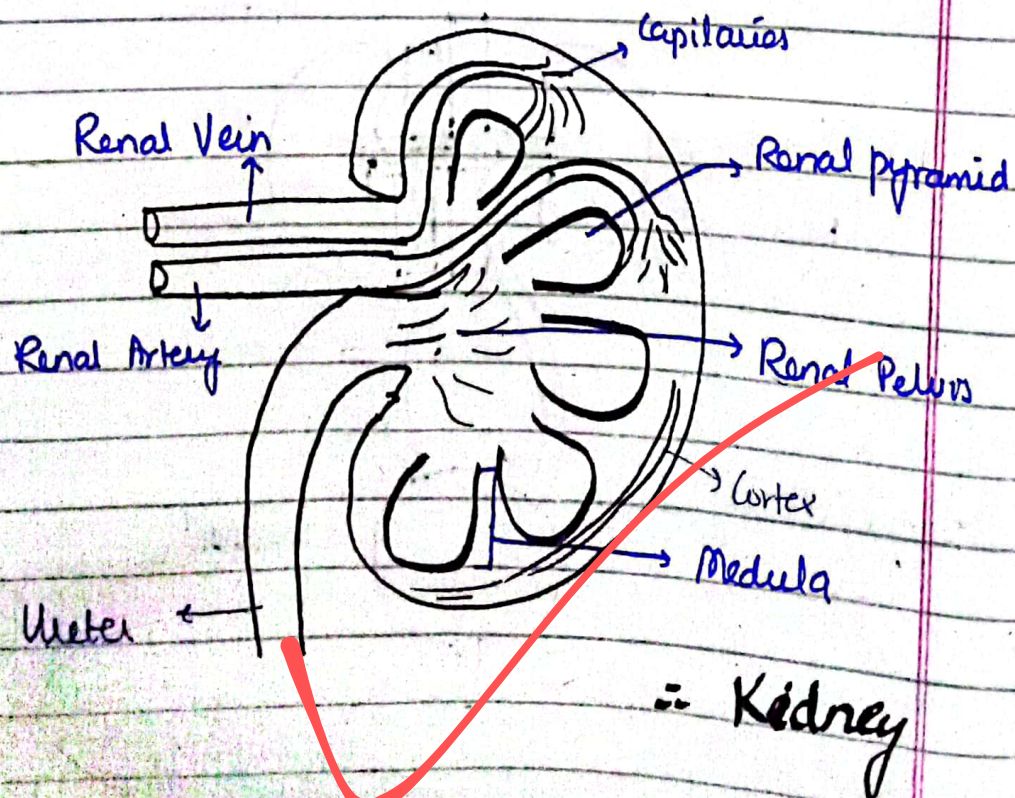 Capilaries
Renal Vein
Renal pyramid
Renal Artery
Renal Pelvis
Cortex
Medula
Ureter
∴ Kidney